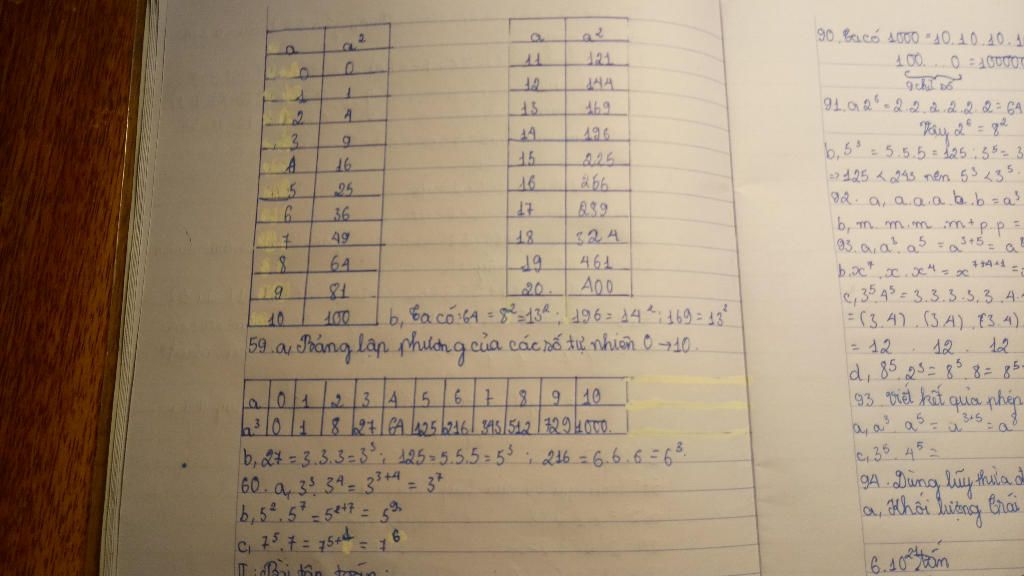 a a²
0 0
1 1
2 4
3 9
4 16
5 25
6 36
7 49
8 64
9 81
10 100
a a²
11 121
12 144
13 169
14 196
15 225
16 256
17 289
18 324
19 461
20. 400
b, Ta có: 64 = 8² = 13² ; 196 = 14² ; 169 = 13²
59. a, Bảng lập phương của các số tự nhiên 0 → 10.
a 0 1 2 3 4 5 6 7 8 9 10
a³ 0 1 8 27 64 125 216 343 512 729 1000.
b, 27 = 3.3.3 = 3³ ; 125 = 5.5.5 = 5³ ; 216 = 6.6.6 = 6³.
60. a, 3³. 3⁴ = 3³⁺⁴ = 3⁷
b, 5². 5⁷ = 5²⁺⁷ = 5⁹
c, 7⁵. 7 = 7⁵⁺¹ = 7⁶
90. Ta có 1000 = 10.10.10.
100...0 = 10000
9 chữ số
91. a 2⁶ = 2.2.2.2.2.2 = 64
Vậy 2⁶ = 8²
b, 5³ = 5.5.5 = 125 ; 3⁵ = 3
⇒ 125 < 243 nên 5³ < 3⁵.
92. a, a.a.a.b.b = a³
b, m.m.m.m + p.p =
93. a, a³. a⁵ = a³⁺⁵ = a⁸
b. x⁷. x. x⁴ = x⁷⁺⁴⁺¹ =
c, 3⁵. 4⁵ = 3.3.3.3.3.4.
= (3.4). (3.4). (3.4)
= 12 . 12 . 12
d, 8⁵. 2³ = 8⁵. 8 = 8⁵⁺
93. Viết kết quả phép
a, a³ a⁵ = a³⁺⁵ = a⁸
c, 3⁵. 4⁵ =
94. Dùng lũy thừa
a, Khối lượng trái
6.10²¹ tấn